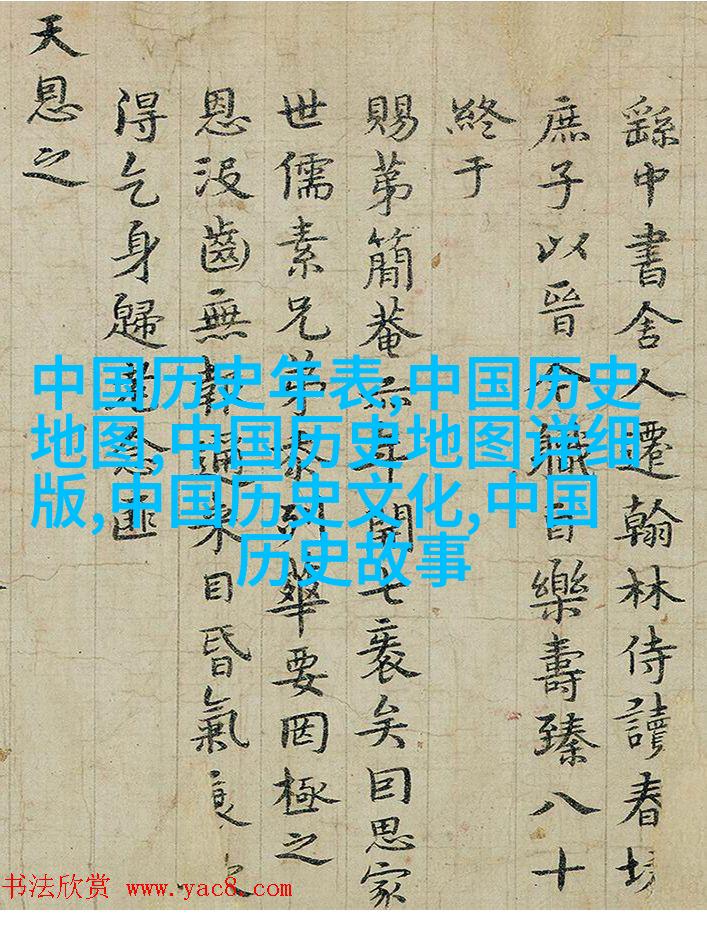 繇中書舍人遷翰林侍讀春坊
庶子以晉職樂壽臻八十
終于
賜第簡菴年開七袠矣囙思家
世儒素兄弟列華要罔極之
恩沒齒無報來目昏氣衰
得乞身歸念匪
天恩之
中国历史年表,中国历史
地图,中国历史地图详细
版,中国历史文化,中国
历史故事
书法欣赏 www.yac8.com